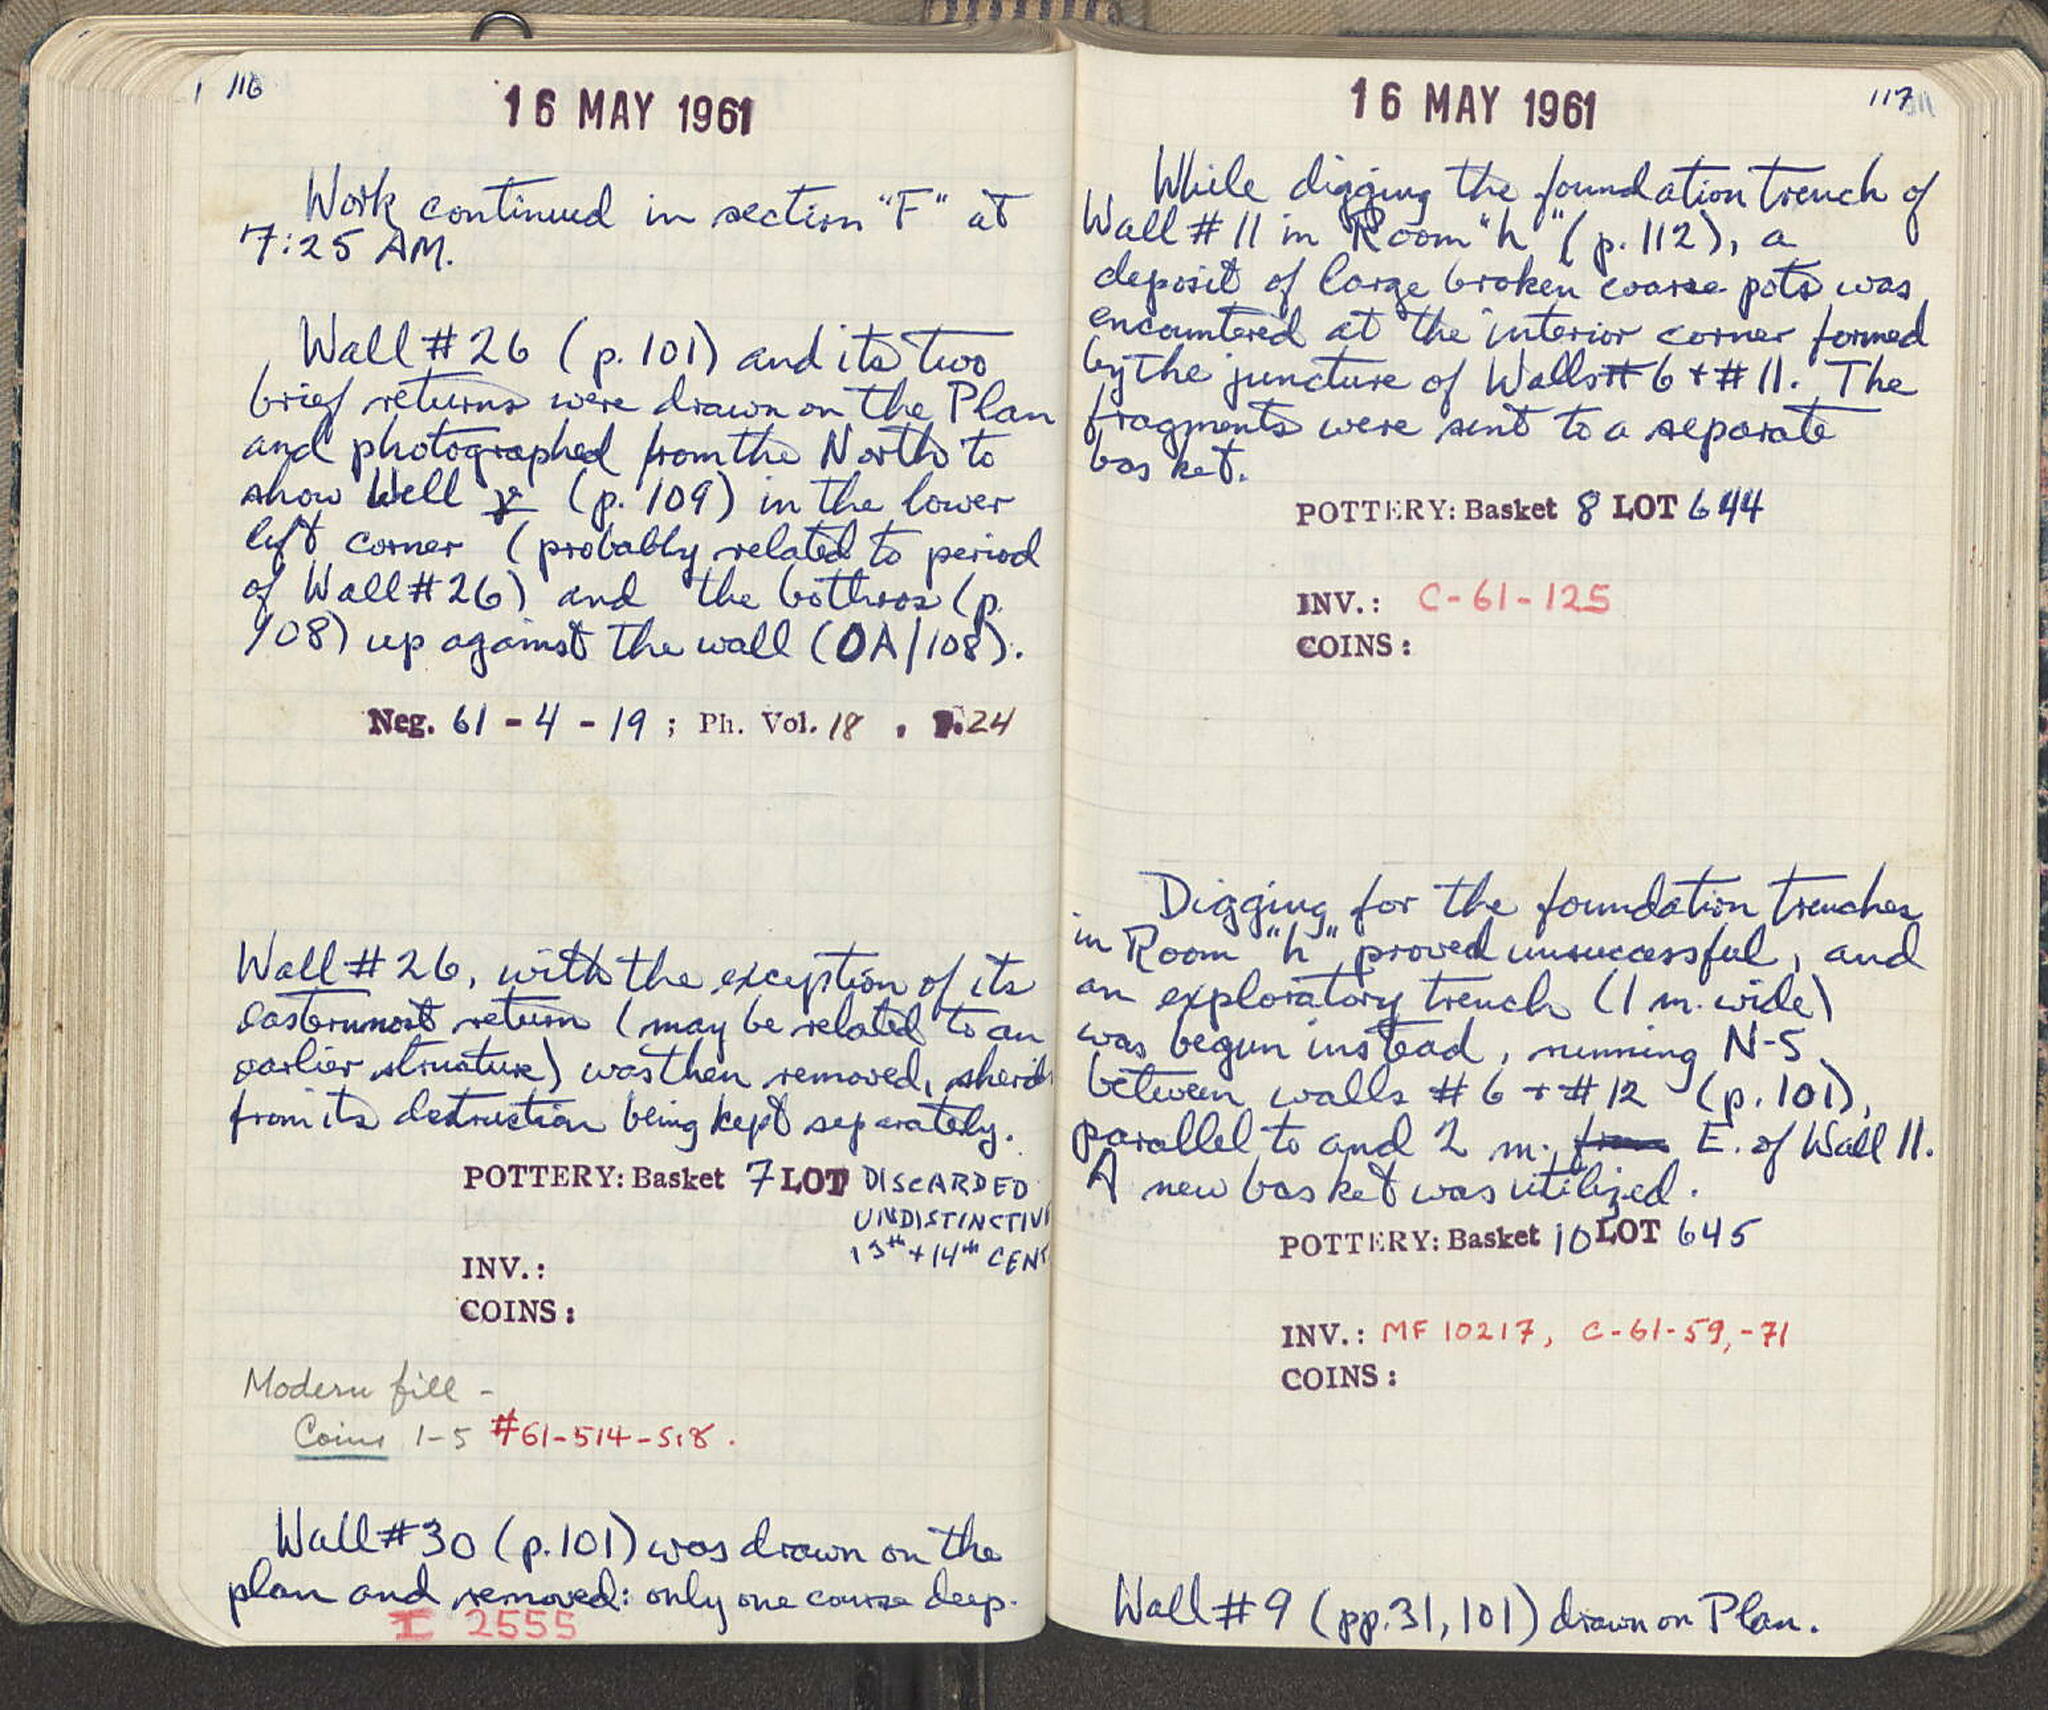 116
16 MAY 1961
Work continued in section "F" at
7:25 AM.
Wall #26 (p. 101) and its two
brief returns were drawn on the Plan
and photographed from the North to
show Well (p. 109) in the lower
left corner (probably related to period
of Wall #26) and the bothros (p.
108) up against the wall (OA/108).
Neg. 61 - 4 - 19 ; Ph. Vol. 18 . P. 24
Wall #26, with the exception of its
easternmost return (may be related to an
earlier structure) was then removed, sherds
from its destruction being kept separately.
POTTERY: Basket 7 LOT DISCARDED
UNDISTINCTIVE
13th + 14th CENT
INV.:
COINS:
Modern fill -
Coins 1-5 #61-514-518.
Wall #30 (p. 101) was drawn on the
plan and removed: only one course deep.
I 2555
117
16 MAY 1961
While digging the foundation trench of
Wall #11 in Room "h" (p. 112), a
deposit of large broken coarse pots was
encountered at the interior corner formed
by the juncture of Walls #6 + #11. The
fragments were sent to a separate
basket.
POTTERY: Basket 8 LOT 644
INV.: C-61-125
COINS:
Digging for the foundation trenches
in Room "h" proved unsuccessful, and
an exploratory trench (1 m. wide)
was begun instead, running N-S
between walls #6 + #12 (p. 101),
parallel to and 2 m. from E. of Wall 11.
A new basket was utilized.
POTTERY: Basket 10 LOT 645
INV.: MF 10217, C-61-59, -71
COINS:
Wall #9 (pp. 31, 101) drawn on Plan.